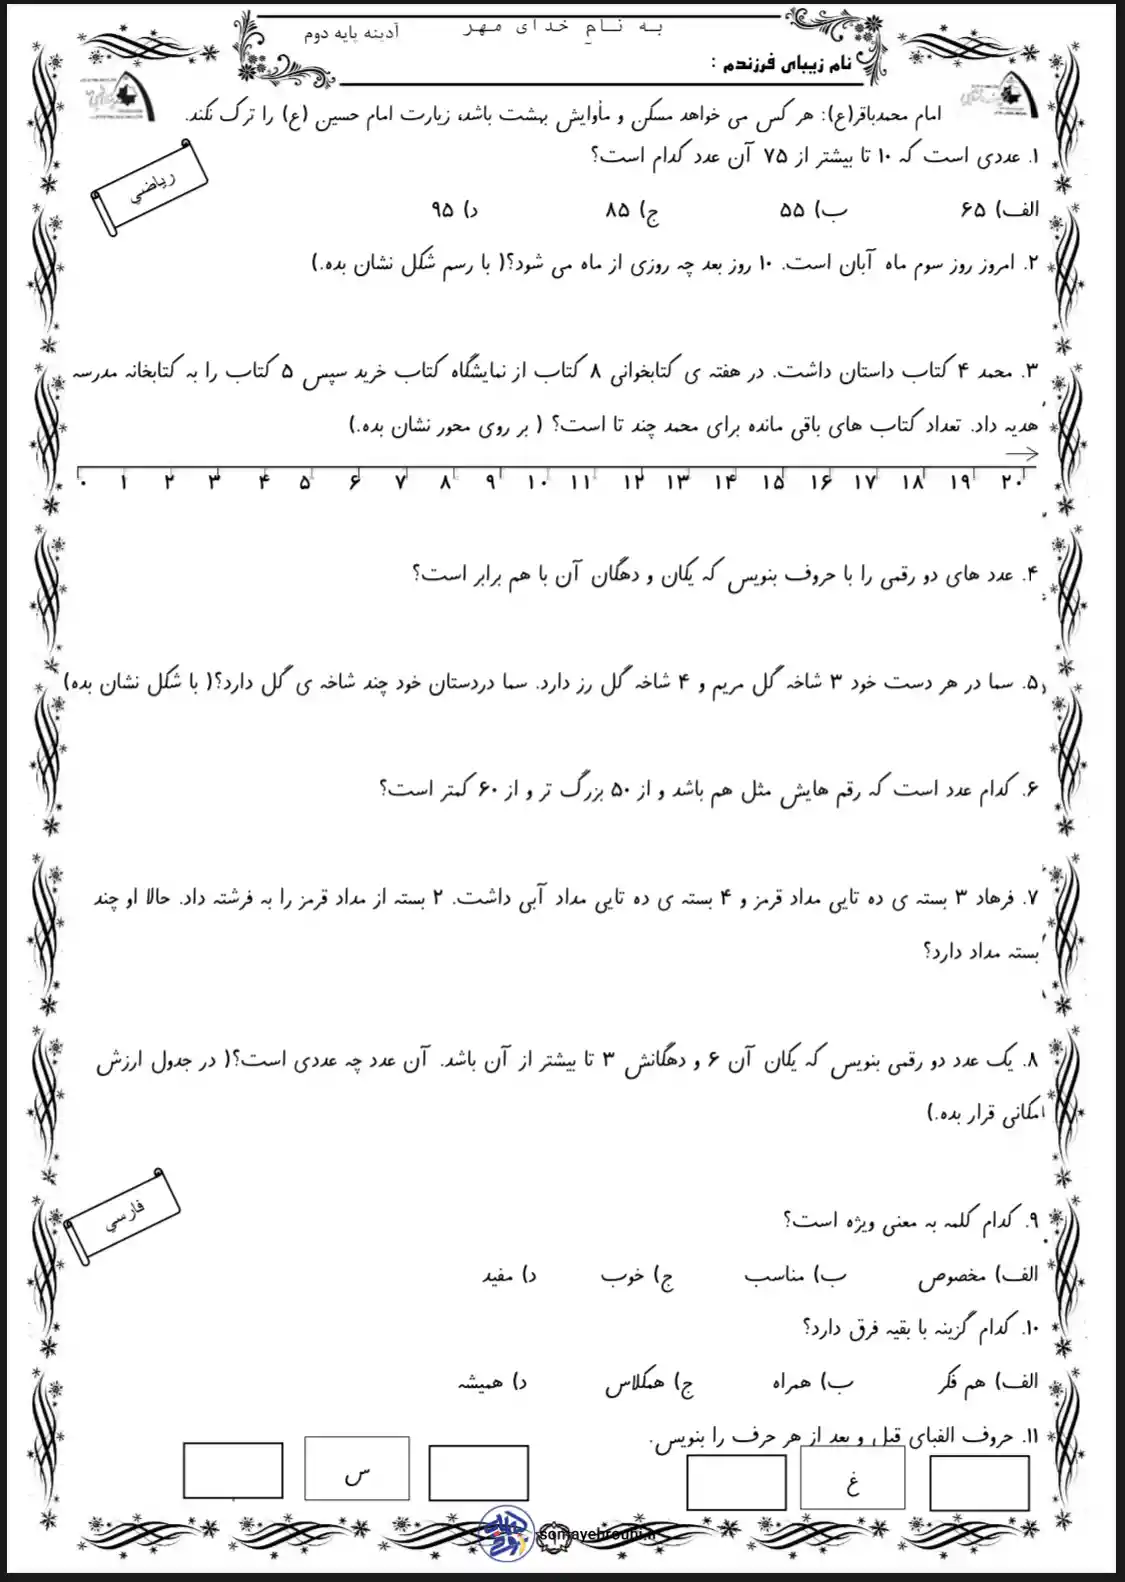 به نام خدای مهر
آدینه پایه دوم
نام زیبای فرزندم :
امام محمدباقر(ع): هر کس می خواهد مسکن و مأوایش بهشت باشد، زیارت امام حسین (ع) را ترک نکند.
ریاضي
۱. عددی است که ۱۰ تا بیشتر از ۷۵ آن عدد کدام است؟
الف) ۶۵ ب) ۵۵ ج) ۸۵ د) ۹۵
۲. امروز روز سوم ماه آبان است. ۱۰ روز بعد چه روزی از ماه می شود؟( با رسم شکل نشان بده.)
۳. محمد ۴ کتاب داستان داشت. در هفته ی کتابخوانی ۸ کتاب از نمایشگاه کتاب خرید سپس ۵ کتاب را به کتابخانه مدرسه
هدیه داد. تعداد کتاب های باقی مانده برای محمد چند تا است؟ ( بر روی محور نشان بده.)
۰ ۱ ۲ ۳ ۴ ۵ ۶ ۷ ۸ ۹ ۱۰ ۱۱ ۱۲ ۱۳ ۱۴ ۱۵ ۱۶ ۱۷ ۱۸ ۱۹ ۲۰
۴. عدد های دو رقمی را با حروف بنویس که یکان و دهگان آن با هم برابر است؟
۵. سما در هر دست خود ۳ شاخه گل مریم و ۴ شاخه گل رز دارد. سما دردستان خود چند شاخه ی گل دارد؟( با شکل نشان بده)
۶. کدام عدد است که رقم هایش مثل هم باشد و از ۵۰ بزرگ تر و از ۶۰ کمتر است؟
۷. فرهاد ۳ بسته ی ده تایی مداد قرمز و ۴ بسته ی ده تایی مداد آبی داشت. ۲ بسته از مداد قرمز را به فرشته داد. حالا او چند
بسته مداد دارد؟
۸. یک عدد دو رقمی بنویس که یکان آن ۶ و دهگانش ۳ تا بیشتر از آن باشد. آن عدد چه عددی است؟( در جدول ارزش
امکانی قرار بده.)
فارسي
۹. کدام کلمه به معنی ویژه است؟
الف) مخصوص ب) مناسب ج) خوب د) مفید
۱۰. کدام گزینه با بقیه فرق دارد؟
الف) هم فکر ب) همراه ج) همکلاس د) همیشه
۱۱. حروف الفبای قبل و بعد از هر حرف را بنویس.
غ س